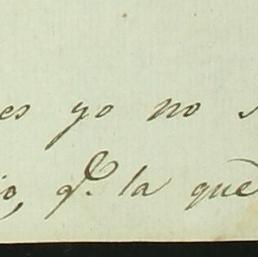 es yo no s
io, qe. la que